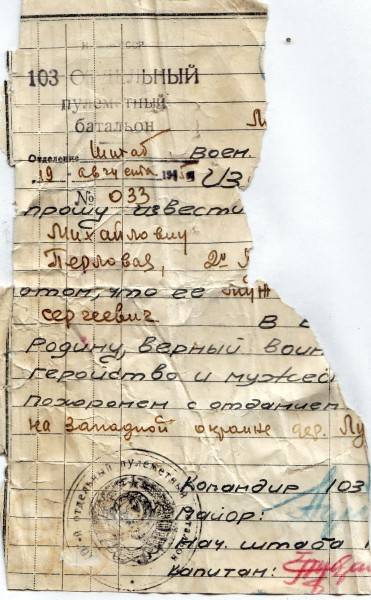 103 ОТДЕЛЬНЫЙ
пулеметный
батальон
Отделение Штаб Воен.
19 августа 194
№ 033 Из
прошу извести
Михайловну
Перловая, 2я
о том, что ее муж
сергеевич В
Родину, верный воин
геройство и мужес
похоронен с отданием
на западной окраине дер. Лу
отдельный пулеметный
Командир 103
Майор:
Нач. штаба
Капитан: